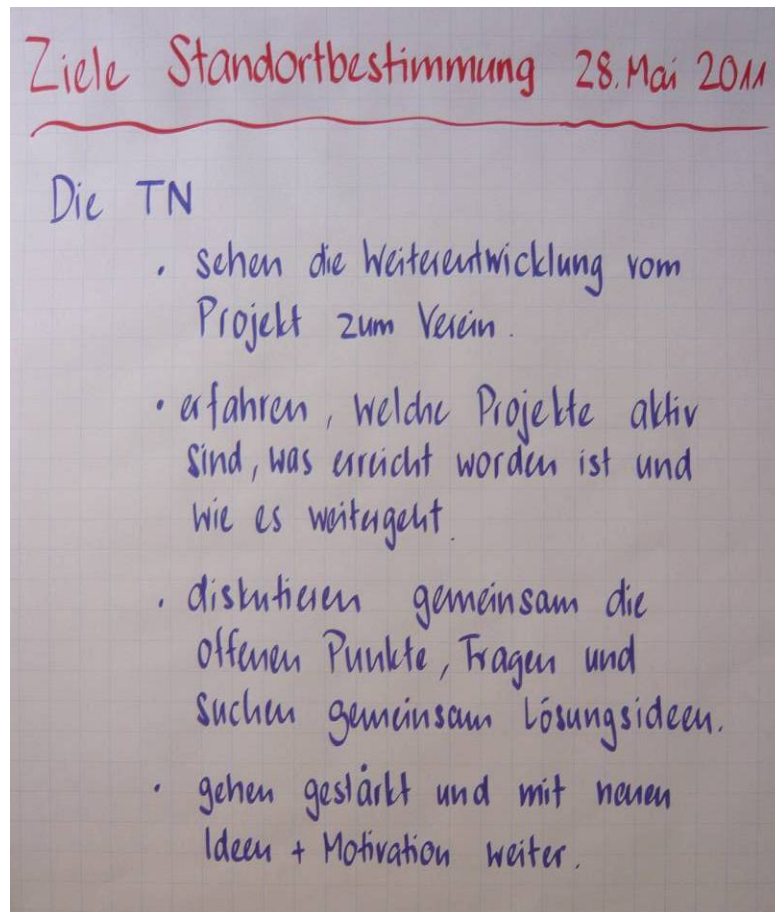 Ziele Standortbestimmung 28. Mai 2011
Die TN
• sehen die Weiterentwicklung vom
Projekt zum Verein.
• erfahren, welche Projekte aktiv
sind, was erreicht worden ist und
wie es weitergeht.
• diskutieren gemeinsam die
offenen Punkte, Fragen und
suchen gemeinsam Lösungsideen.
• gehen gestärkt und mit neuen
Ideen + Motivation weiter.